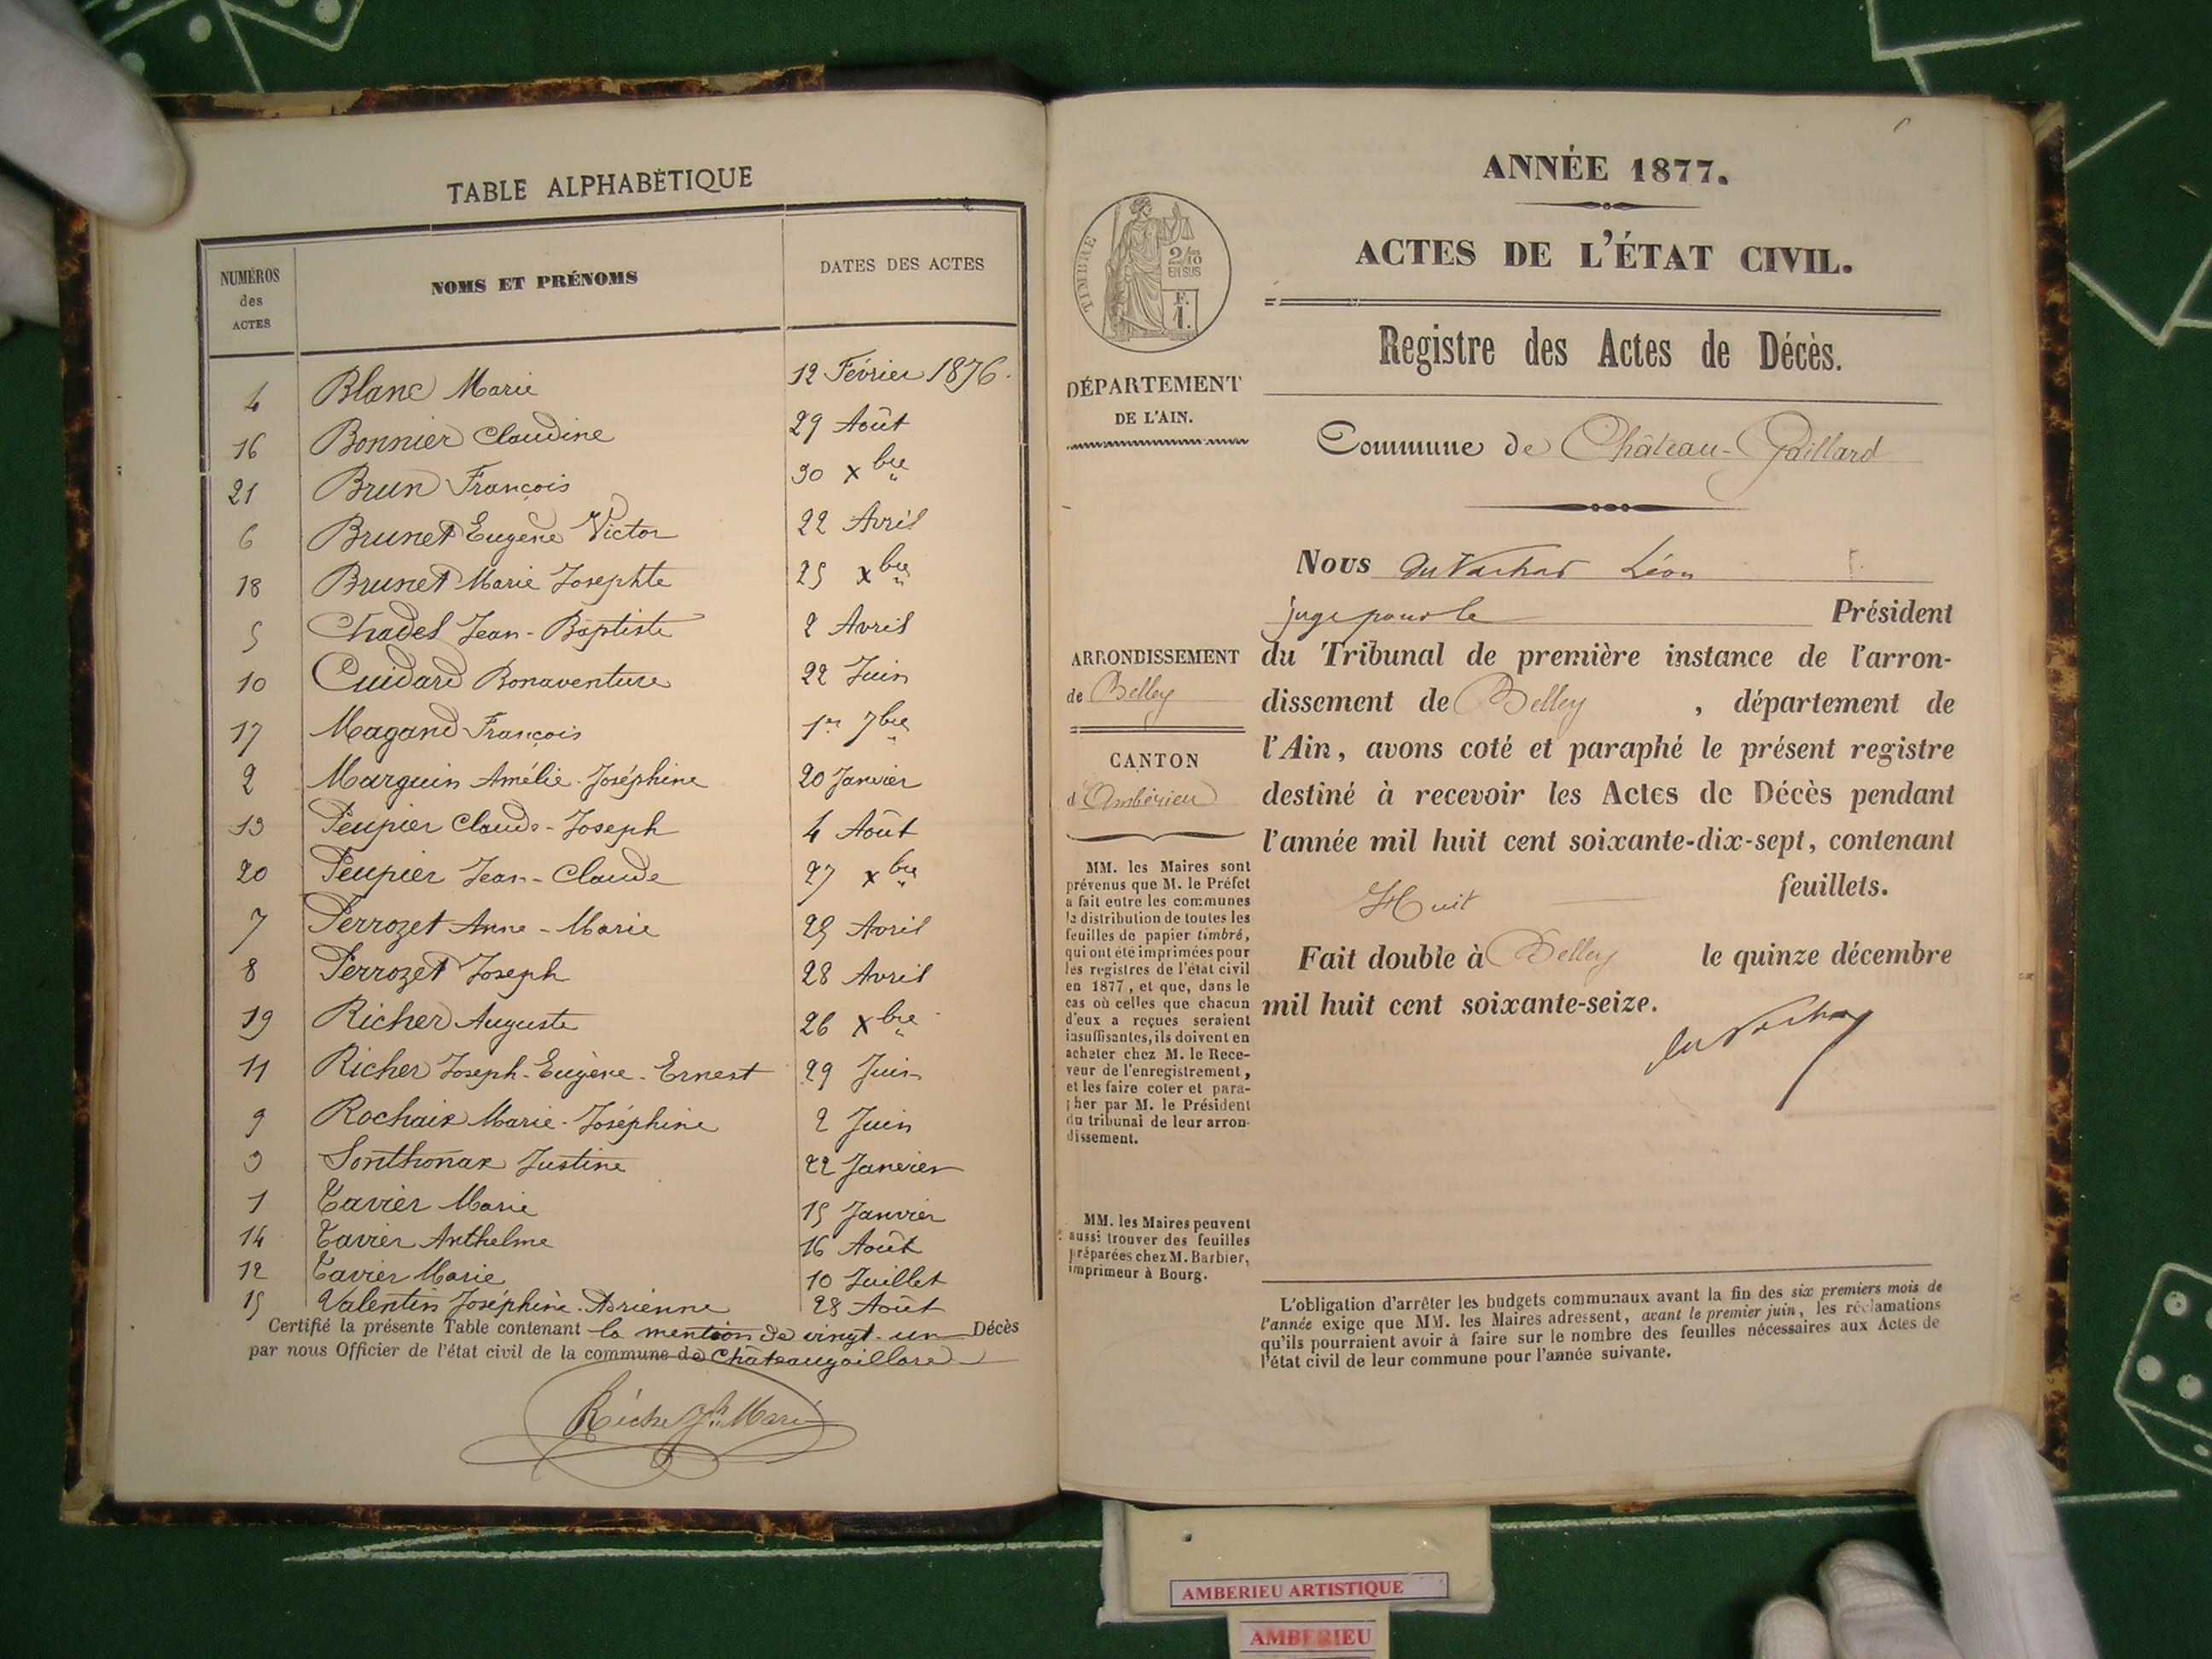 TABLE ALPHABÉTIQUE
NUMÉROS des ACTES NOMS ET PRÉNOMS DATES DES ACTES
4 Blanc Marie 12 Février 1876.
16 Bonnier Claudine 29 Août
21 Brun François 30 Xbre
6 Brunet Eugène Victor 22 Avril
18 Brunet Marie Josephte 25 Xbre
5 Chadel Jean-Baptiste 2 Avril
10 Cuidard Bonaventure 22 Juin
17 Magand François 1er 7bre
2 Marguin Amélie-Joséphine 20 Janvier
13 Peupier Claude-Joseph 4 Août
20 Peupier Jean-Claude 27 Xbre
7 Perrozet Anne-Marie 25 Avril
8 Perrozet Joseph 28 Avril
19 Richer Auguste 26 Xbre
11 Richer Joseph-Eugène-Ernest 29 Juin
9 Rochaix Marie-Joséphine 2 Juin
3 Sonthonax Justine 22 Janvier
1 Tavier Marie 15 Janvier
14 Tavier Anthelme 16 Août
12 Tavier Marie 10 Juillet
15 Valentin Joséphine-Adrienne 28 Août
Certifié la présente Table contenant la mention de vingt-un Décès
par nous Officier de l'état civil de la commune de Châteaugaillard
ANNÉE 1877.
ACTES DE L'ÉTAT CIVIL.
Registre des Actes de Décès.
Commune de Château-Gaillard
TIMBRE
2/10
EN SUS
F.
1.
DÉPARTEMENT
DE L'AIN.
ARRONDISSEMENT
de Belley
CANTON
d'Ambérieu
MM. les Maires sont
prévenus que M. le Préfet
a fait entre les communes
la distribution de toutes les
feuilles de papier timbré,
qui ont été imprimées pour
les registres de l'état civil
en 1877, et que, dans le
cas où celles que chacun
d'eux a reçues seraient
insuffisantes, ils doivent en
acheter chez M. le Rece-
veur de l'enregistrement,
et les faire coter et para-
pher par M. le Président
du tribunal de leur arron-
dissement.
MM. les Maires peuvent
aussi trouver des feuilles
préparées chez M. Barbier,
imprimeur à Bourg.
Nous Léon
juge pour le Président
du Tribunal de première instance de l'arron-
dissement de Belley, département de
l'Ain, avons coté et paraphé le présent registre
destiné à recevoir les Actes de Décès pendant
l'année mil huit cent soixante-dix-sept, contenant
Huit feuillets.
Fait double à Belley le quinze décembre
mil huit cent soixante-seize.
L'obligation d'arrêter les budgets communaux avant la fin des six premiers mois de
l'année exige que MM. les Maires adressent, avant le premier juin, les réclamations
qu'ils pourraient avoir à faire sur le nombre des feuilles nécessaires aux Actes de
l'état civil de leur commune pour l'année suivante.
AMBERIEU ARTISTIQUE
AMBERIEU